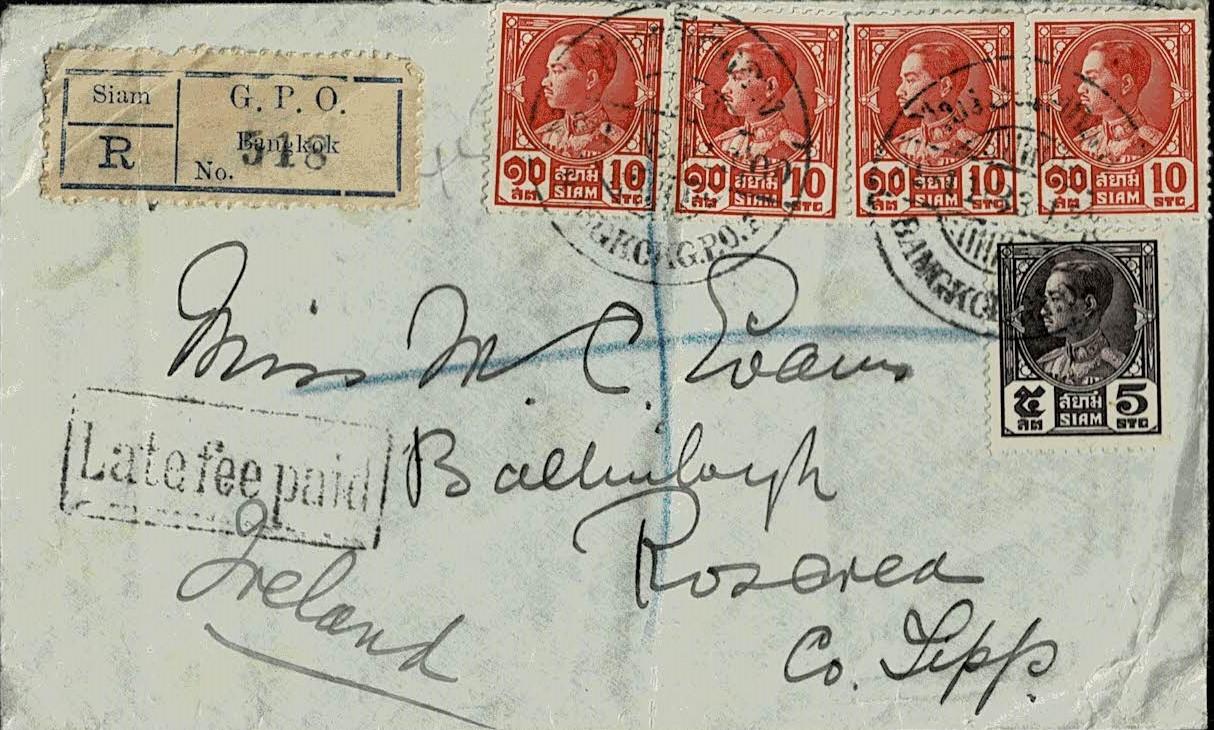 Siam
R
G. P. O.
Bangkok
No. 518
๑๐ สยาม 10
สต SIAM STG
๑๐ สยาม 10
สต SIAM STG
๑๐ สยาม 10
สต SIAM STG
๑๐ สยาม 10
สต SIAM STG
BANGKOK G.P.O.
BANGKOK
๕ สยาม 5
สต SIAM STG
Miss M. C. Evans
Late fee paid
Ballinlough
Roscrea
Ireland
Co. Tipp.